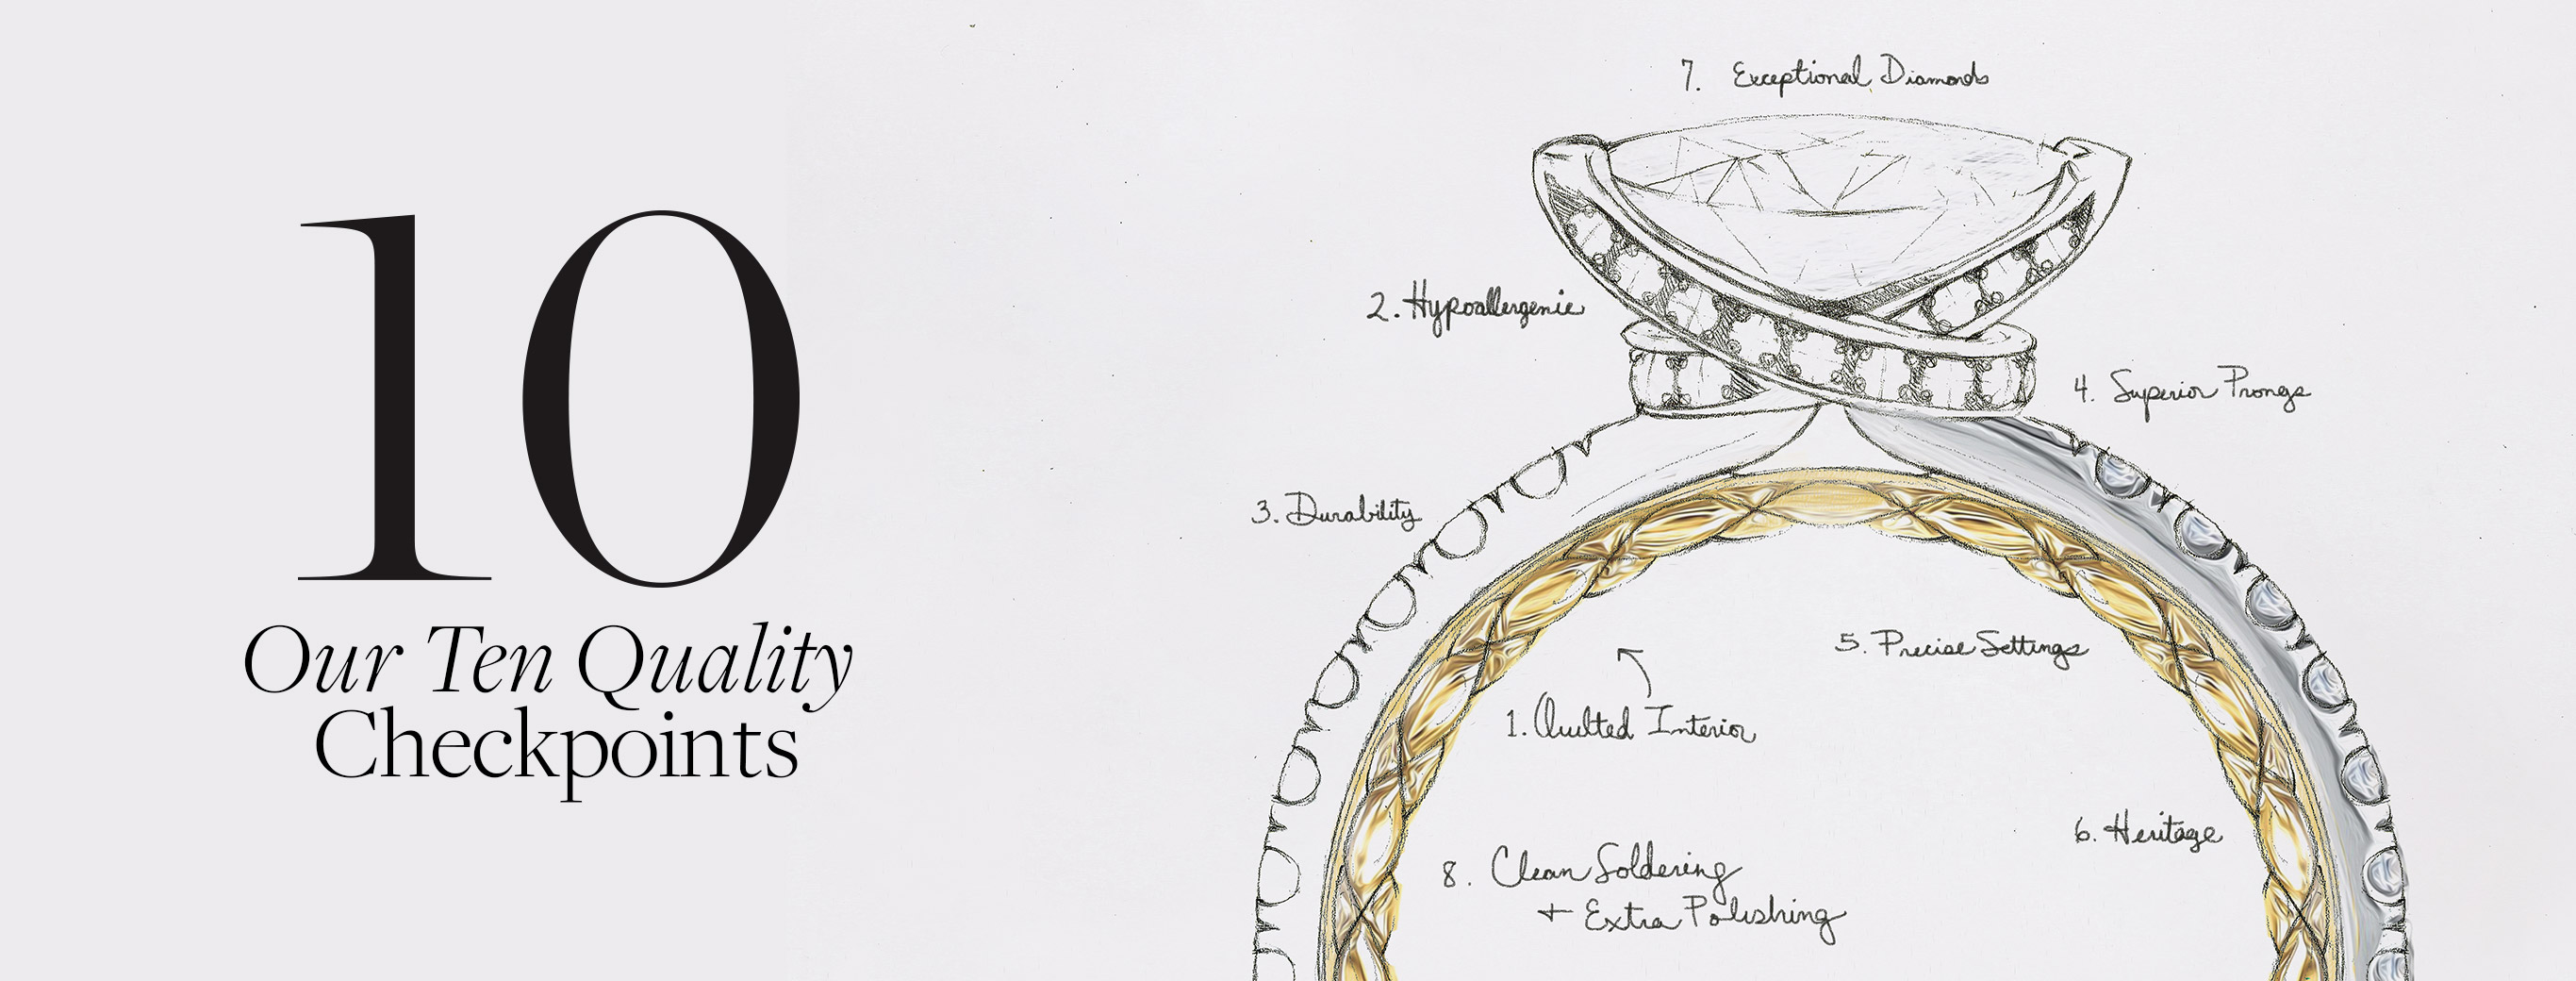 10
Our Ten Quality
Checkpoints
7. Exceptional Diamonds
2. Hypoallergenic
4. Superior Prongs
3. Durability
5. Precise Settings
1. Quilted Interior
6. Heritage
8. Clean Soldering
+ Extra Polishing